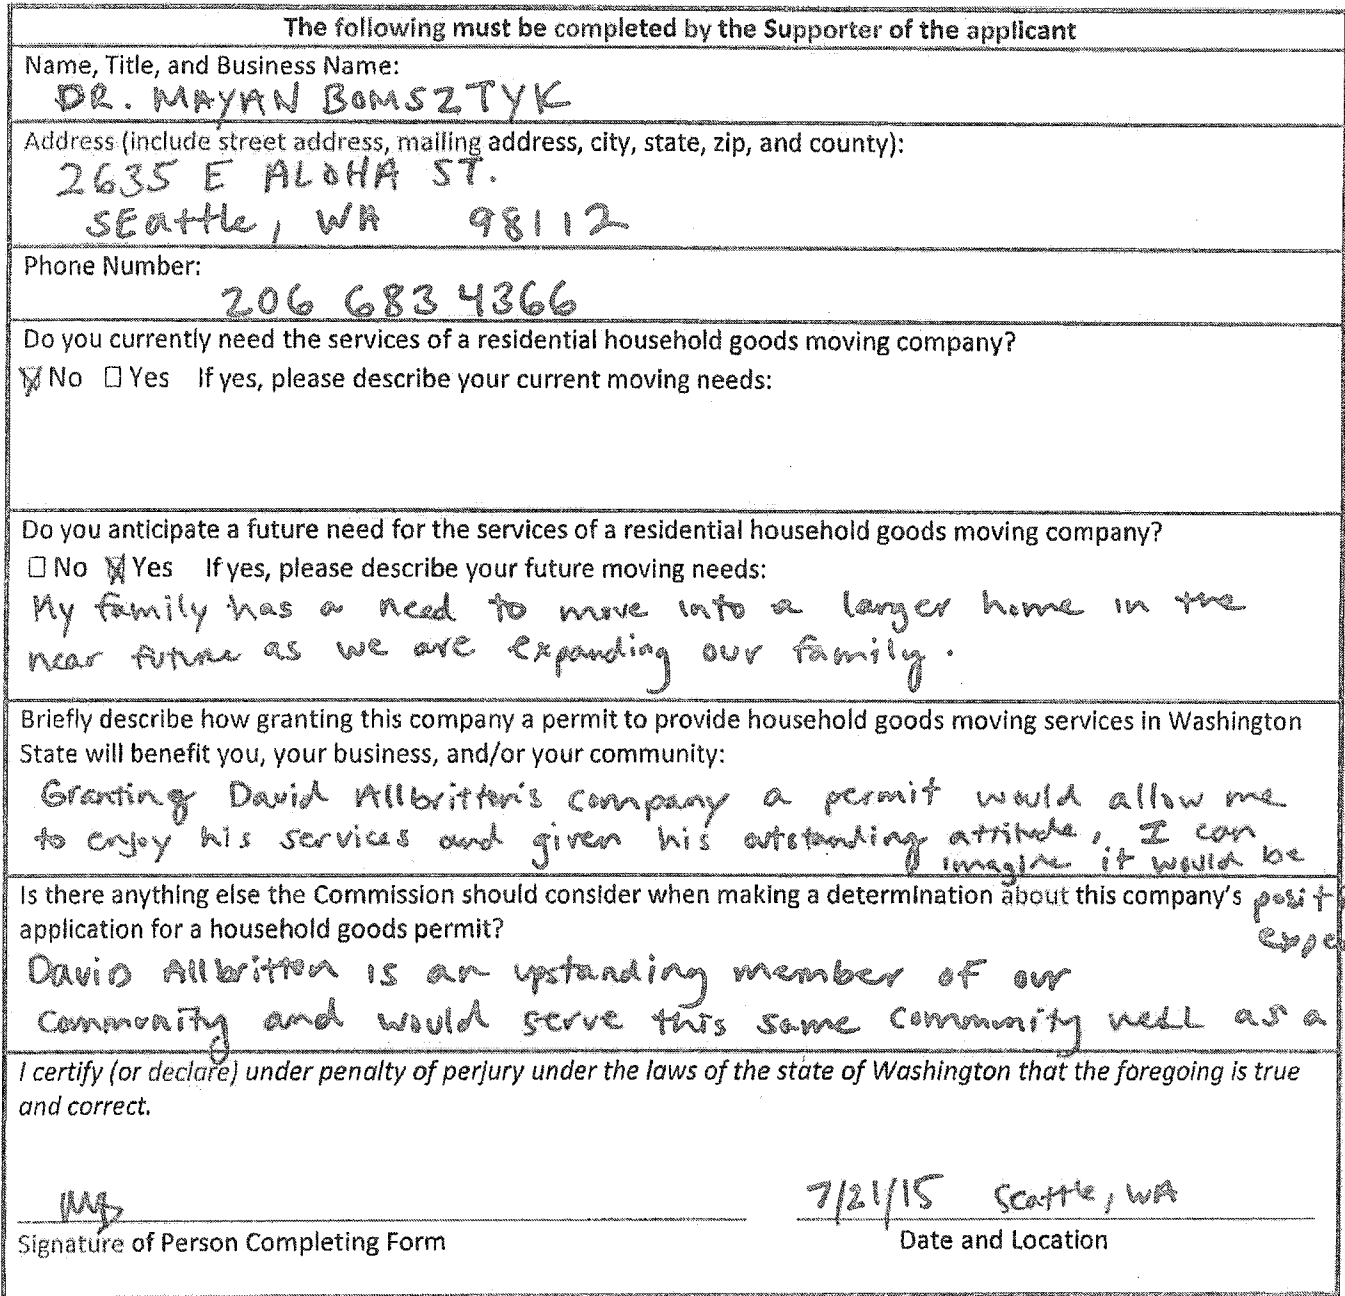 The following must be completed by the Supporter of the applicant
Name, Title, and Business Name:
DR. MAYAN BOMSZTYK
Address (include street address, mailing address, city, state, zip, and county):
2635 E ALOHA ST.
SEattle, WA 98112
Phone Number:
206 683 4366
Do you currently need the services of a residential household goods moving company?
☒ No ☐ Yes If yes, please describe your current moving needs:
Do you anticipate a future need for the services of a residential household goods moving company?
☐ No ☒ Yes If yes, please describe your future moving needs:
My family has a need to move into a larger home in the
near future as we are expanding our family.
Briefly describe how granting this company a permit to provide household goods moving services in Washington
State will benefit you, your business, and/or your community:
Granting David Allbritton's company a permit would allow me
to enjoy his services and given his outstanding attitude, I can
imagine it would be
Is there anything else the Commission should consider when making a determination about this company's
posit
application for a household goods permit?
expe
David Allbritton is an upstanding member of our
Community and would serve this same community well as a
I certify (or declare) under penalty of perjury under the laws of the state of Washington that the foregoing is true
and correct.
7/21/15 Seattle, WA
Signature of Person Completing Form
Date and Location